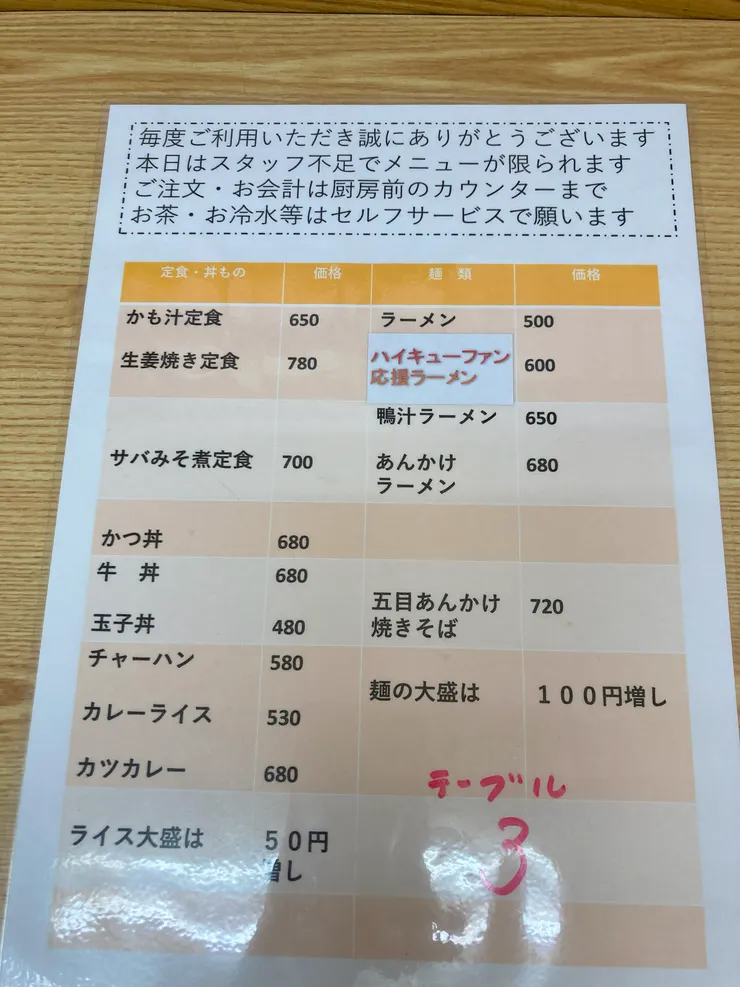 毎度ご利用いただき誠にありがとうございます
本日はスタッフ不足でメニューが限られます
ご注文・お会計は厨房前のカウンターまで
お茶・お冷水等はセルフサービスで願います
定食・丼もの 価格 麺 類 価格
かも汁定食 650 ラーメン 500
生姜焼き定食 780 ハイキューファン 600
応援ラーメン
鴨汁ラーメン 650
サバみそ煮定食 700 あんかけ 680
ラーメン
かつ丼 680
牛 丼 680
五目あんかけ 720
玉子丼 480 焼きそば
チャーハン 580
麺の大盛は 100円増し
カレーライス 530
カツカレー 680
テーブル
ライス大盛は 50円 3
増し